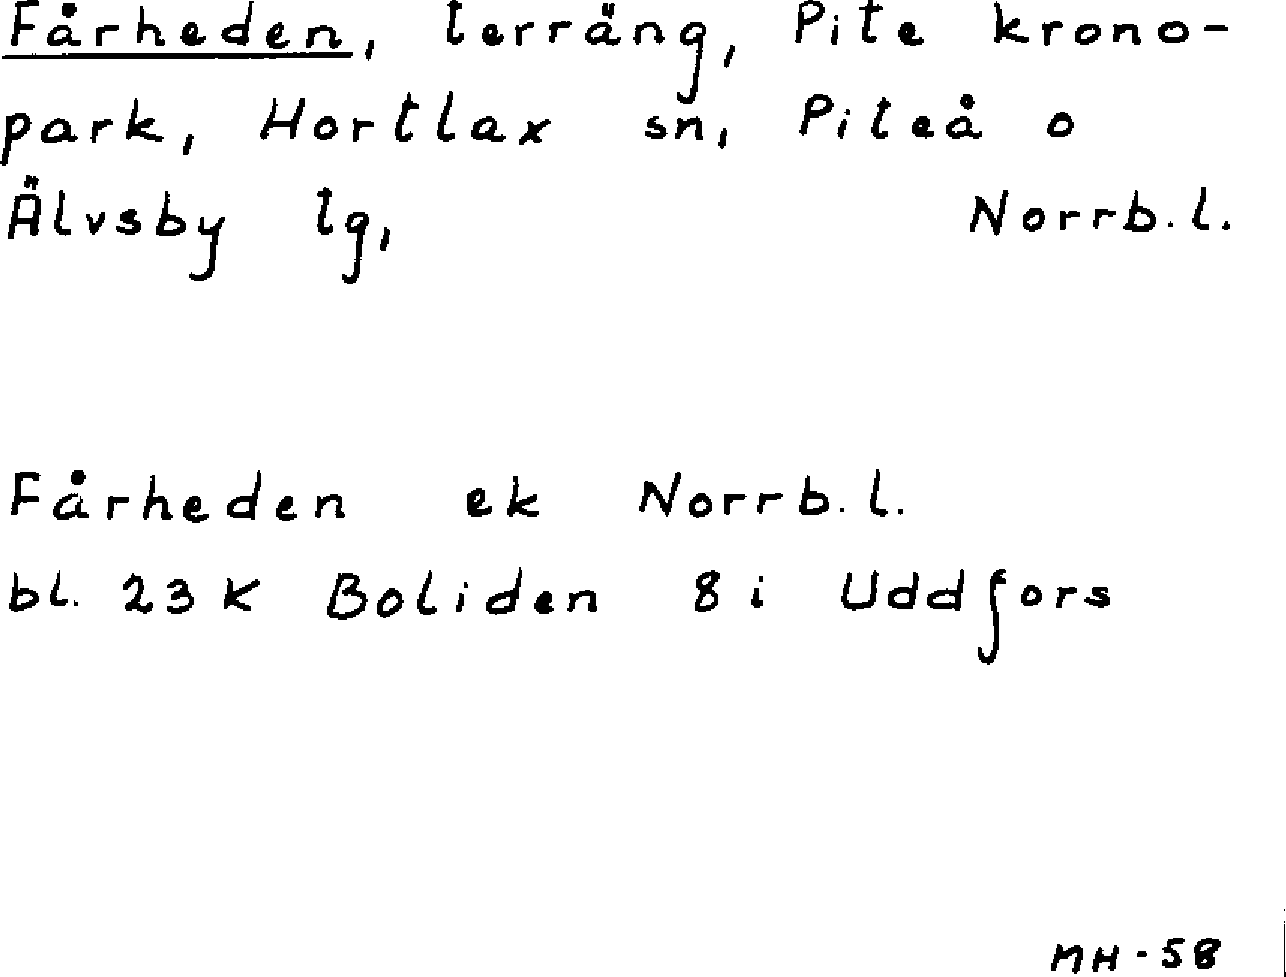 Fårheden, terräng, Pite krono-
park, Hortlax sn, Piteå o
Älvsby tg, Norrb.l.
Fårheden ek Norrb.l.
bl. 23 K Boliden 8 i Uddfors
MH-58